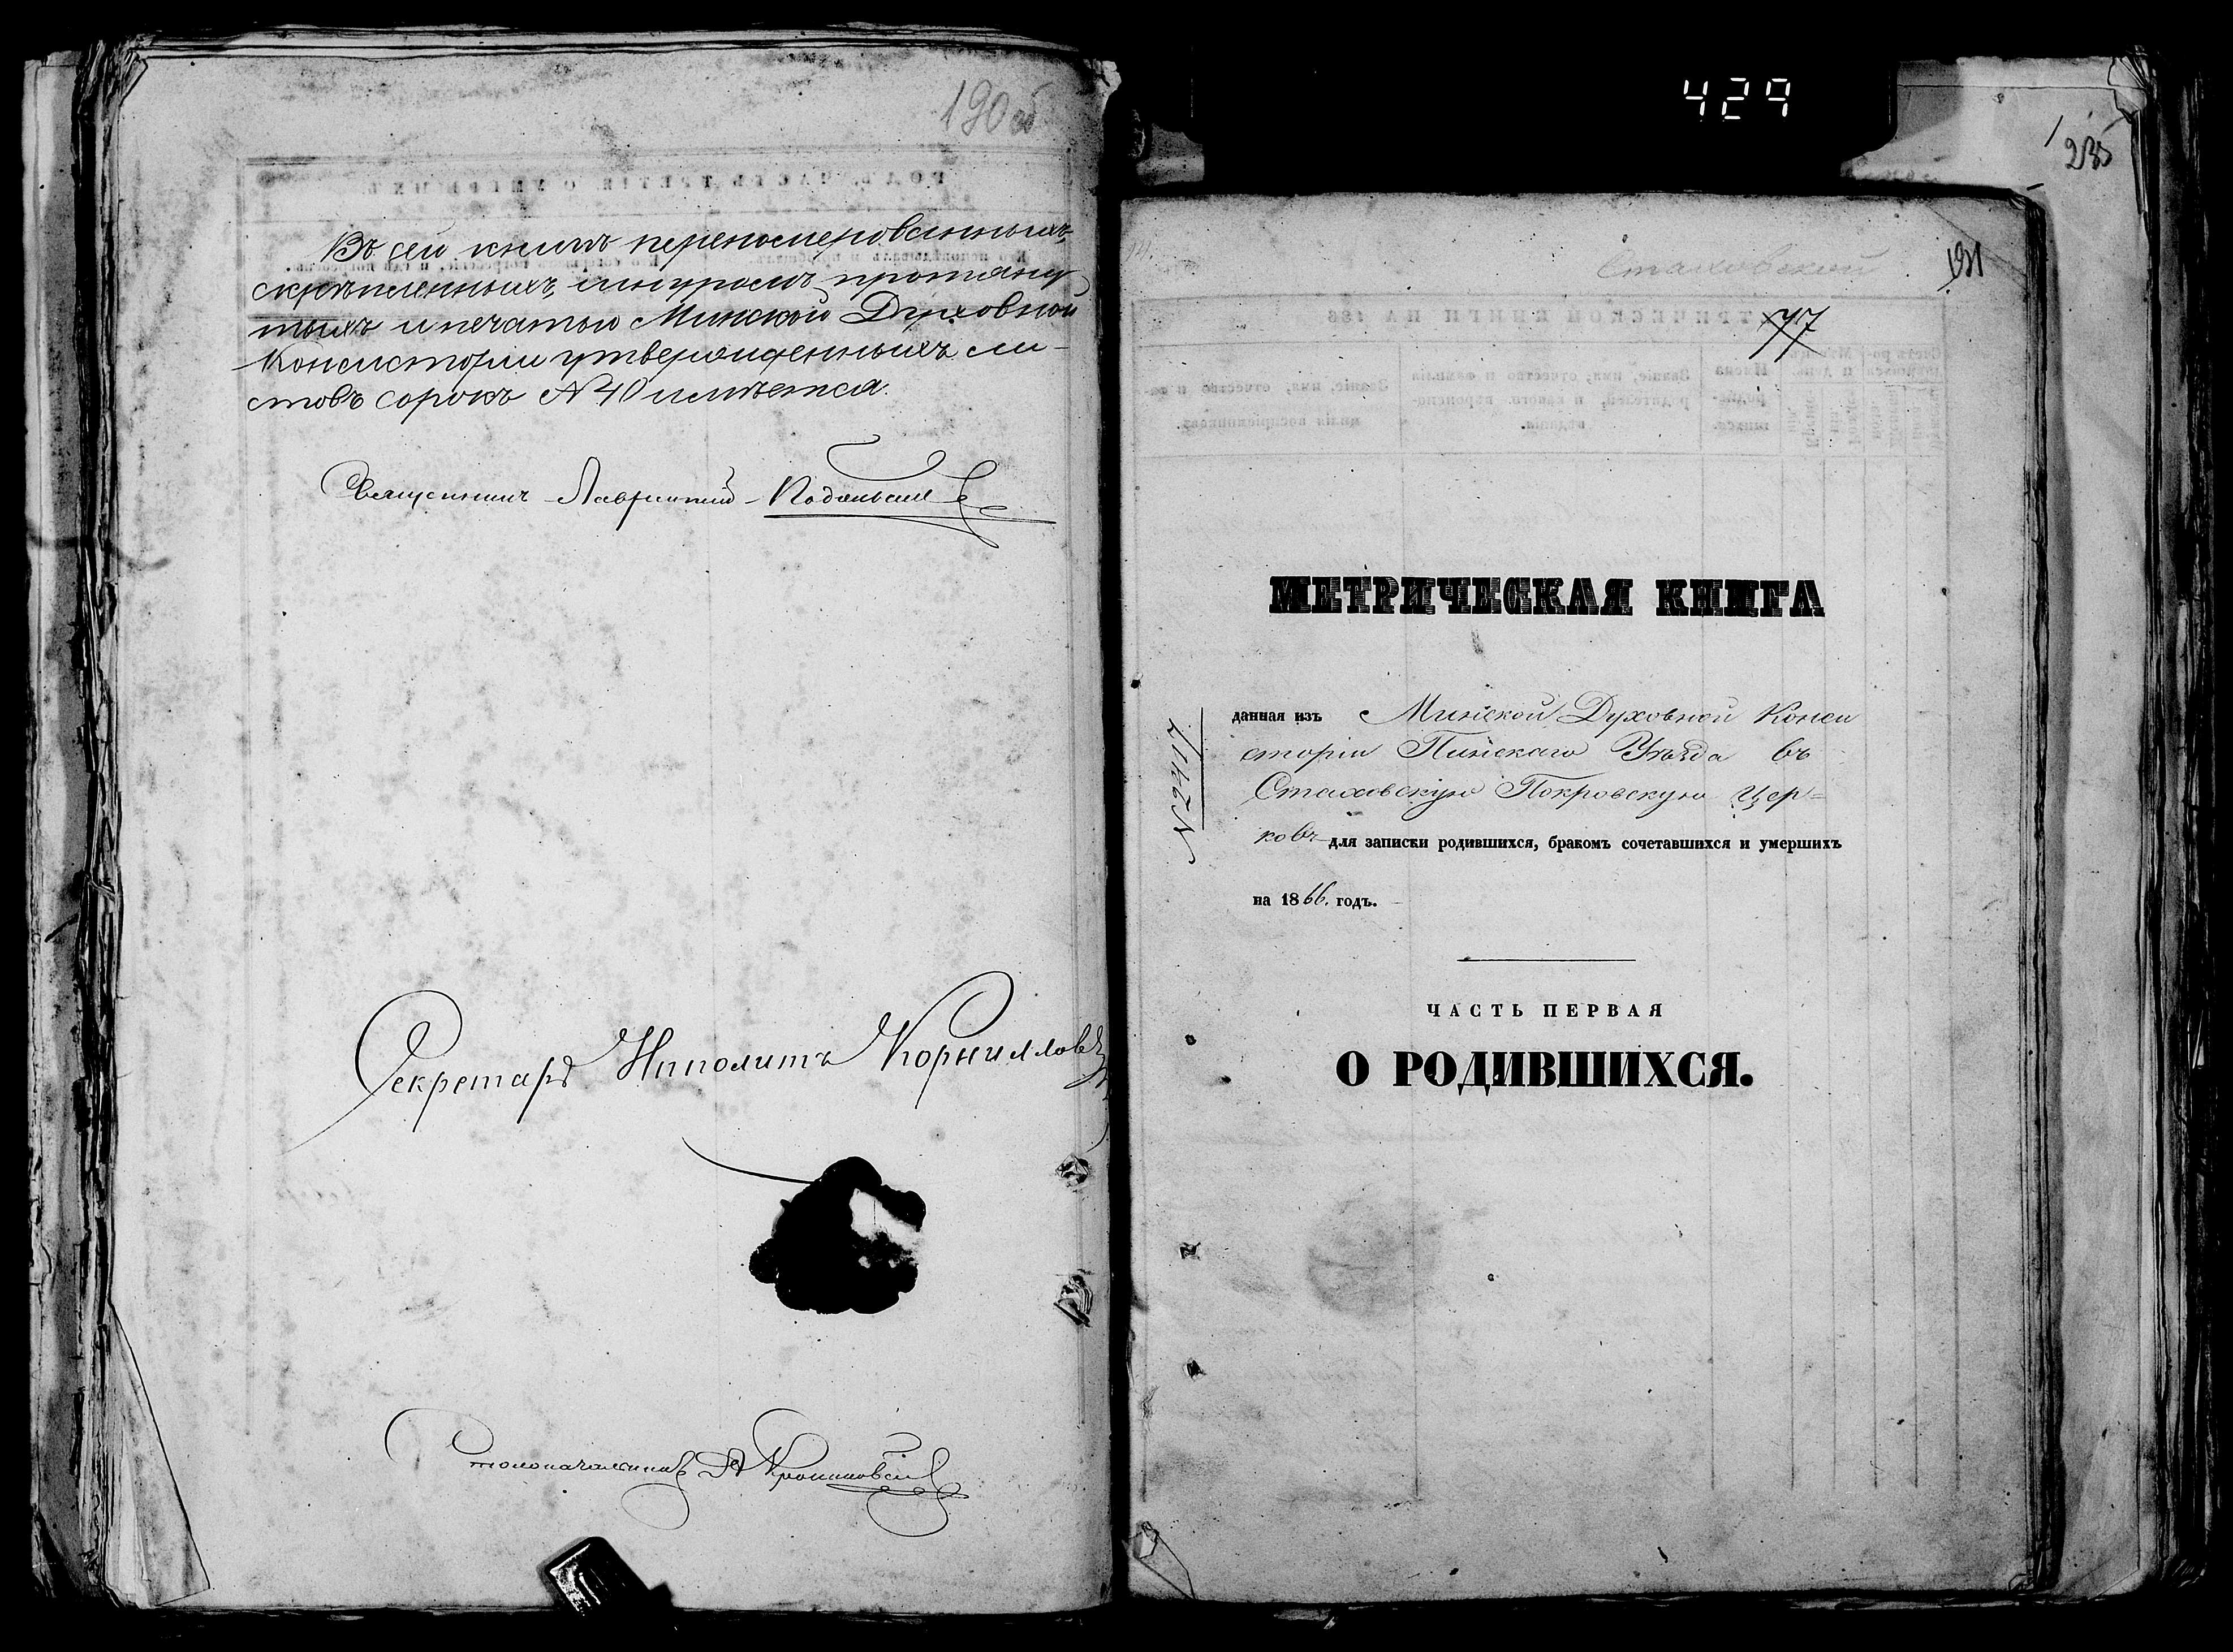 190 об
Въ сей книгѣ перенумерованныхъ,
скрѣпленныхъ, шнуромъ протяну
тыхъ и печатью Минской Духовной
Консисторіи утвержденныхъ ли-
стовъ сорокъ № 40 имѣется.
Священникъ
Секретарь Иполитъ Корниллов
Столоначальникъ
429
235
Стаховской
191
77
МЕТРИЧЕСКАЯ КНИГА
данная изъ Минской Духовной Конси
сторіи Пинскаго Уѣзда въ
Стаховскую Покровскую Цер=
ковь для записки родившихся, бракомъ сочетавшихся и умершихъ
на 1866. годъ.
№ 2417.
ЧАСТЬ ПЕРВАЯ
О РОДИВШИХСЯ.